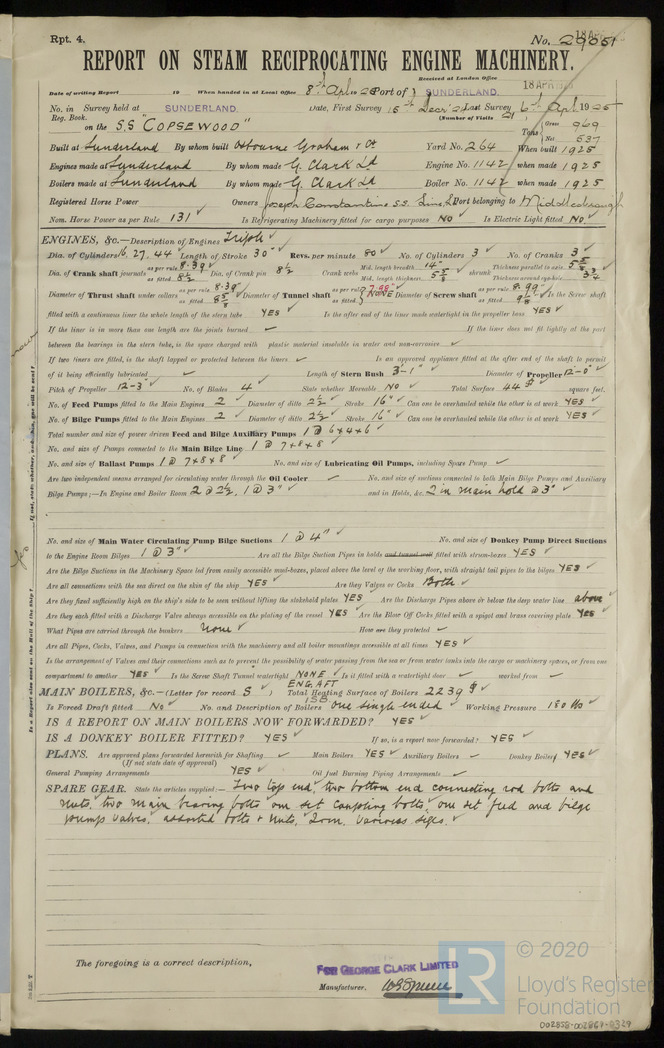 Rpt. 4.
No. 29051
18 APR
REPORT ON STEAM RECIPROCATING ENGINE MACHINERY.
Received at London Office 18 APR
Date of writing Report 19 When handed in at Local Office 8th Apl 19 25 Port of SUNDERLAND.
No. in Survey held at SUNDERLAND. Date, First Survey 15th Decr 24 Last Survey 6th Apl 1925
Reg. Book. (Number of Visits
on the S.S "COPSEWOOD" Tons Gross 969 Net 537
Built at Sunderland By whom built Osbourne Graham & Co Yard No. 264 When built 1925
Engines made at Sunderland By whom made G. Clark Ld Engine No. 1142 when made 1925
Boilers made at Sunderland By whom made G. Clark Ld Boiler No. 1142 when made 1925
Registered Horse Power Owners Joseph Constantine S.S. Line, Ld Port belonging to Middlesbrough
Nom. Horse Power as per Rule 131 Is Refrigerating Machinery fitted for cargo purposes NO Is Electric Light fitted No.
ENGINES, &c.—Description of Engines Triple
Dia. of Cylinders 16, 27, 44 Length of Stroke 30" Revs. per minute 80 No. of Cylinders 3 No. of Cranks 3
Dia. of Crank shaft journals as per rule 8.39 as fitted 8½ Dia. of Crank pin 8½ Crank webs Mid. length breadth 14" Mid. length thickness 5⅝ shrunk Thickness parallel to axis 5⅝ Thickness around eyehole 3¾
Diameter of Thrust shaft under collars as per rule 8.39 as fitted 8⅝ Diameter of Tunnel shaft as per rule 7.98" as fitted NONE Diameter of Screw shaft as per rule 8.99 as fitted 9⅛ Is the Screw shaft
fitted with a continuous liner the whole length of the stern tube YES Is the after end of the liner made watertight in the propeller boss YES
If the liner is in more than one length are the joints burned If the liner does not fit tightly at the part
between the bearings in the stern tube, is the space charged with plastic material insoluble in water and non-corrosive
If two liners are fitted, is the shaft lapped or protected between the liners Is an approved appliance fitted at the after end of the shaft to permit
of it being efficiently lubricated Length of Stern Bush 3'-1" Diameter of Propeller 12'-0"
Pitch of Propeller 12'-3" No. of Blades 4 State whether Moveable NO Total Surface 44 square feet.
No. of Feed Pumps fitted to the Main Engines 2 Diameter of ditto 2½ Stroke 16" Can one be overhauled while the other is at work YES
No. of Bilge Pumps fitted to the Main Engines 2 Diameter of ditto 2½ Stroke 16" Can one be overhauled while the other is at work YES
Total number and size of power driven Feed and Bilge Auxiliary Pumps 1 @ 6x4x6
No. and size of Pumps connected to the Main Bilge Line 1 @ 7x8x8
No. and size of Ballast Pumps 1 @ 7x8x8 No. and size of Lubricating Oil Pumps, including Spare Pump
Are two independent means arranged for circulating water through the Oil Cooler No. and size of suctions connected to both Main Bilge Pumps and Auxiliary
Bilge Pumps;—In Engine and Boiler Room 2 @ 2½, 1 @ 3" and in Holds, &c. 2 in main hold @ 3"
No. and size of Main Water Circulating Pump Bilge Suctions 1 @ 4" No. and size of Donkey Pump Direct Suctions
to the Engine Room Bilges 1 @ 3" Are all the Bilge Suction Pipes in holds and tunnel well fitted with strum-boxes YES
Are the Bilge Suctions in the Machinery Space led from easily accessible mud-boxes, placed above the level of the working floor, with straight tail pipes to the bilges YES
Are all connections with the sea direct on the skin of the ship YES Are they Valves or Cocks Both
Are they fixed sufficiently high on the ship's side to be seen without lifting the stokehold plates YES Are the Discharge Pipes above or below the deep water line above
Are they each fitted with a Discharge Valve always accessible on the plating of the vessel YES Are the Blow Off Cocks fitted with a spigot and brass covering plate YES
What Pipes are carried through the bunkers None How are they protected
Are all Pipes, Cocks, Valves, and Pumps in connection with the machinery and all boiler mountings accessible at all times YES
Is the arrangement of Valves and their connections such as to prevent the possibility of water passing from the sea or from water tanks into the cargo or machinery spaces, or from one
compartment to another YES Is the Screw Shaft Tunnel watertight NONE ENG. AFT Is it fitted with a watertight door worked from
MAIN BOILERS, &c.—(Letter for record S ) Total Heating Surface of Boilers 2239
Is Forced Draft fitted No No. and Description of Boilers 1SB one single ended Working Pressure 180 lbs
IS A REPORT ON MAIN BOILERS NOW FORWARDED? YES
IS A DONKEY BOILER FITTED? YES If so, is a report now forwarded? YES
PLANS. Are approved plans forwarded herewith for Shafting Main Boilers YES Auxiliary Boilers Donkey Boilers YES
(If not state date of approval)
General Pumping Arrangements YES Oil fuel Burning Piping Arrangements
SPARE GEAR. State the articles supplied:— Two top end, two bottom end connecting rod bolts and
nuts, two main bearing bolts one set coupling bolts, one set feed and bilge
pumps valves, assorted bolts & nuts, Iron various sizes.
The foregoing is a correct description,
FOR GEORGE CLARK LIMITED
Manufacturer.
Is a Report also sent on the Hull of the Ship?
If not, state whether, and when, one will be sent?
Yes
LR
© 2020
Lloyd's Register
Foundation
002558-002567-0329